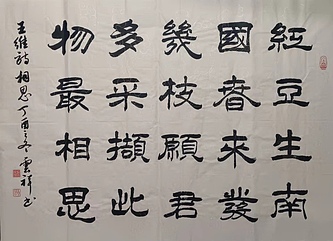 紅豆生南
國春来發
幾枝願君
多采擷此
物最相思
王維詩相思丁酉之冬雲祥书